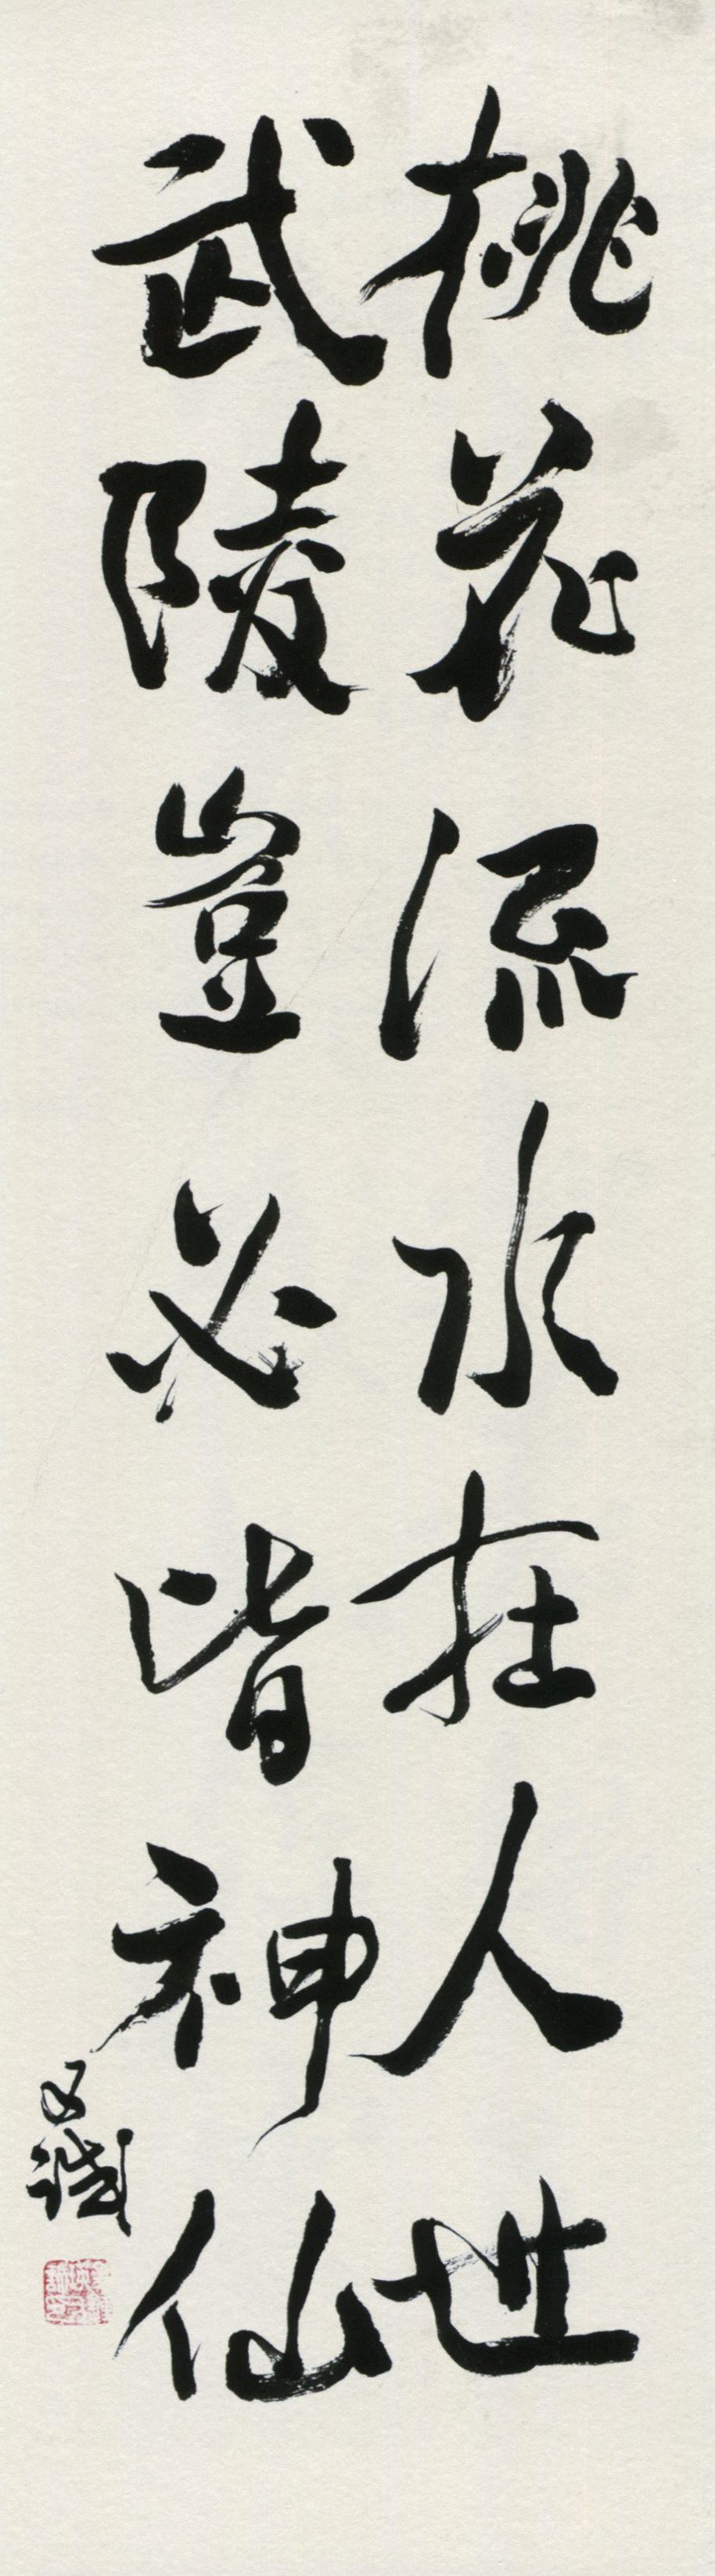 桃花流水在人世
武陵豈必皆神仙